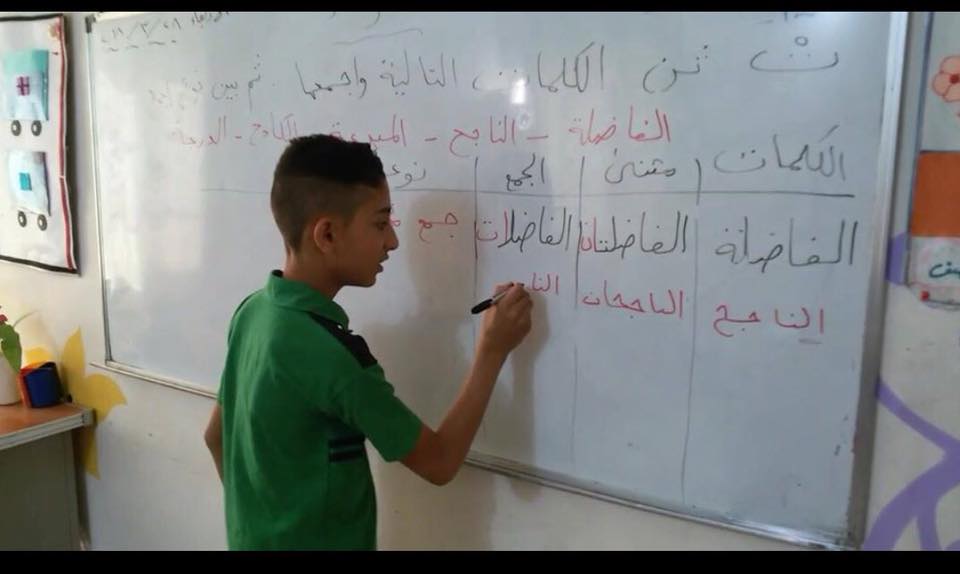 ٢٠١٩/٣/٢٨
ت ثن الكلمات التالية واجمعها ثم بين نوع
الفاضلة - الناجح - المبدعة - الكادح -
الكلمات مثنى الجمع نوع
الفاضلة الفاضلتان الفاضلات جمع
الناجح الناجحان النا